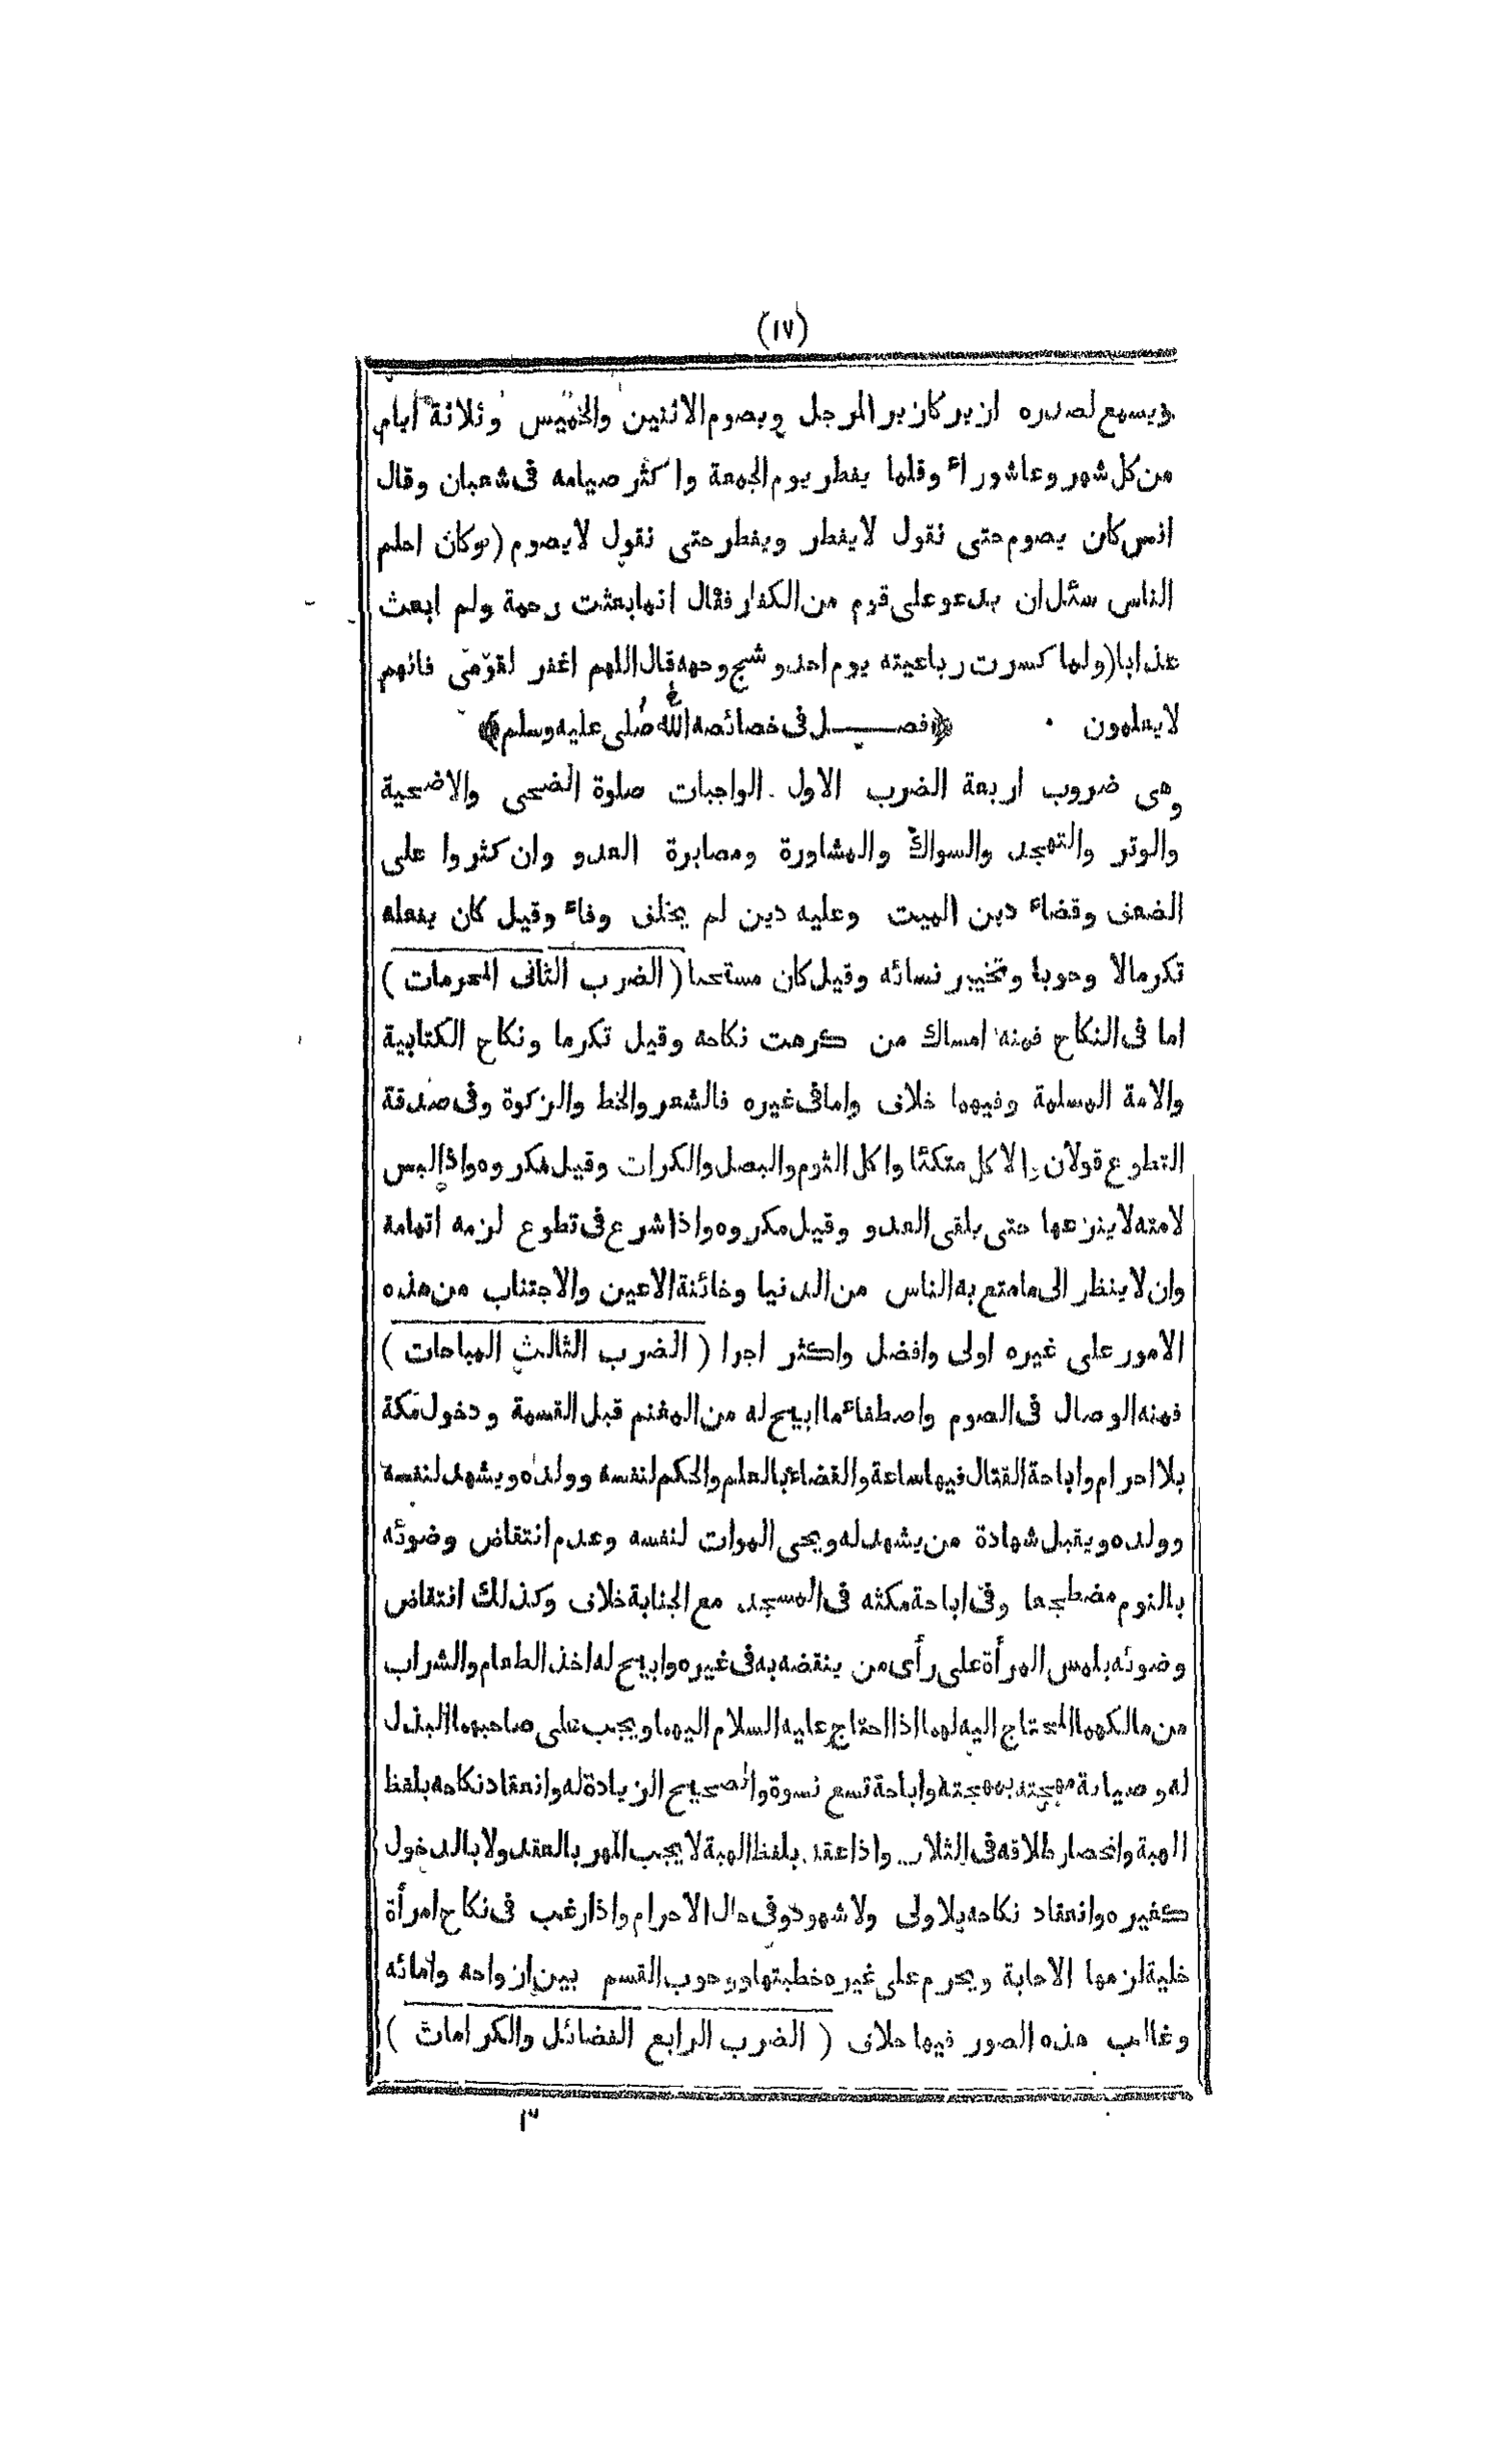 (١٧)
ويسمع لصدره ازيز كازيز المرجل ويصوم الاثنين والخميس وثلاثة ايام
من كل شهر وعاشوراء وقلما يفطر يوم الجمعة واكثر صيامه فى شعبان وقال
انس كان يصوم حتى نقول لا يفطر ويفطر حتى نقول لا يصوم (وكان احلم
الناس سئل ان يدعو على قوم من الكفار فقال انما بعثت رحمة ولم ابعث
عذابا (ولما كسرت رباعيته يوم احد وشج وجهه قال اللهم اغفر لقومى فانهم
لا يعلمون ﴿فصل فى خصائصه صلى الله عليه وسلم﴾
وهى ضروب اربعة الضرب الاول الواجبات صلوة الضحى والاضحية
والوتر والتهجد والسواك والمشاورة ومصابرة العدو وان كثروا على
الضعف وقضاء دين الميت وعليه دين لم يخلف وفاء وقيل كان يفعله
تكرما لا وجوبا وتخيير نسائه وقيل كان مستحبا (الضرب الثانى المحرمات)
اما فى النكاح فمنه امساك من كرهت نكاحه وقيل تكرما ونكاح الكتابية
والامة المسلمة وفيهما خلاف واما فى غيره فالشعر والخط والزكوة وفى صدقة
التطوع قولان والاكل متكئا واكل الثوم والبصل والكرات وقيل مكروه واذا لبس
لامته لا ينزعها حتى يلقى العدو وقيل مكروه واذا شرع فى تطوع لزمه اتمامه
وان لا ينظر الى ما متع به الناس من الدنيا وخائنة الاعين والاجتناب من هذه
الامور على غيره اولى وافضل واكثر اجرا (الضرب الثالث المباحات)
فمنه الوصال فى الصوم واصطفاء ما ابيح له من المغنم قبل القسمة ودخول مكة
بلا احرام واباحة القتال فيها ساعة والقضاء بالعلم والحكم لنفسه وولده ويشهد لنفسه
وولده ويقبل شهادة من يشهد له ويحى الموات لنفسه وعدم انتقاض وضوئه
بالنوم مضطجعا وفى اباحة مكثه فى المسجد مع الجنابة خلاف وكذلك انتقاض
وضوئه بلمس المرأة على رأى من ينقضه به فى غيره وابيح له اخذ الطعام والشراب
من مالكهما المحتاج اليه لهما اذا احتاج عليه السلام اليهما ويجب على صاحبهما البذل
له وصيانة مهجته بمهجته واباحة تسع نسوة والصحيح الزيادة له وانعقاد نكاحه بلفظ
الهبة وانحصار طلاقه فى الثلاث واذا عقد بلفظ الهبة لا يجب المهر بالعقد ولا بالدخول
كغيره وانعقاد نكاحه بلا ولى ولا شهود وفى حال الاحرام واذا رغب فى نكاح امرأة
خلية لزمها الاجابة ويحرم على غيره خطبتها ووجوب القسم بين ازواجه وامائه
وغالب هذه الصور فيها خلاف (الضرب الرابع الفضائل والكرامات)
٣